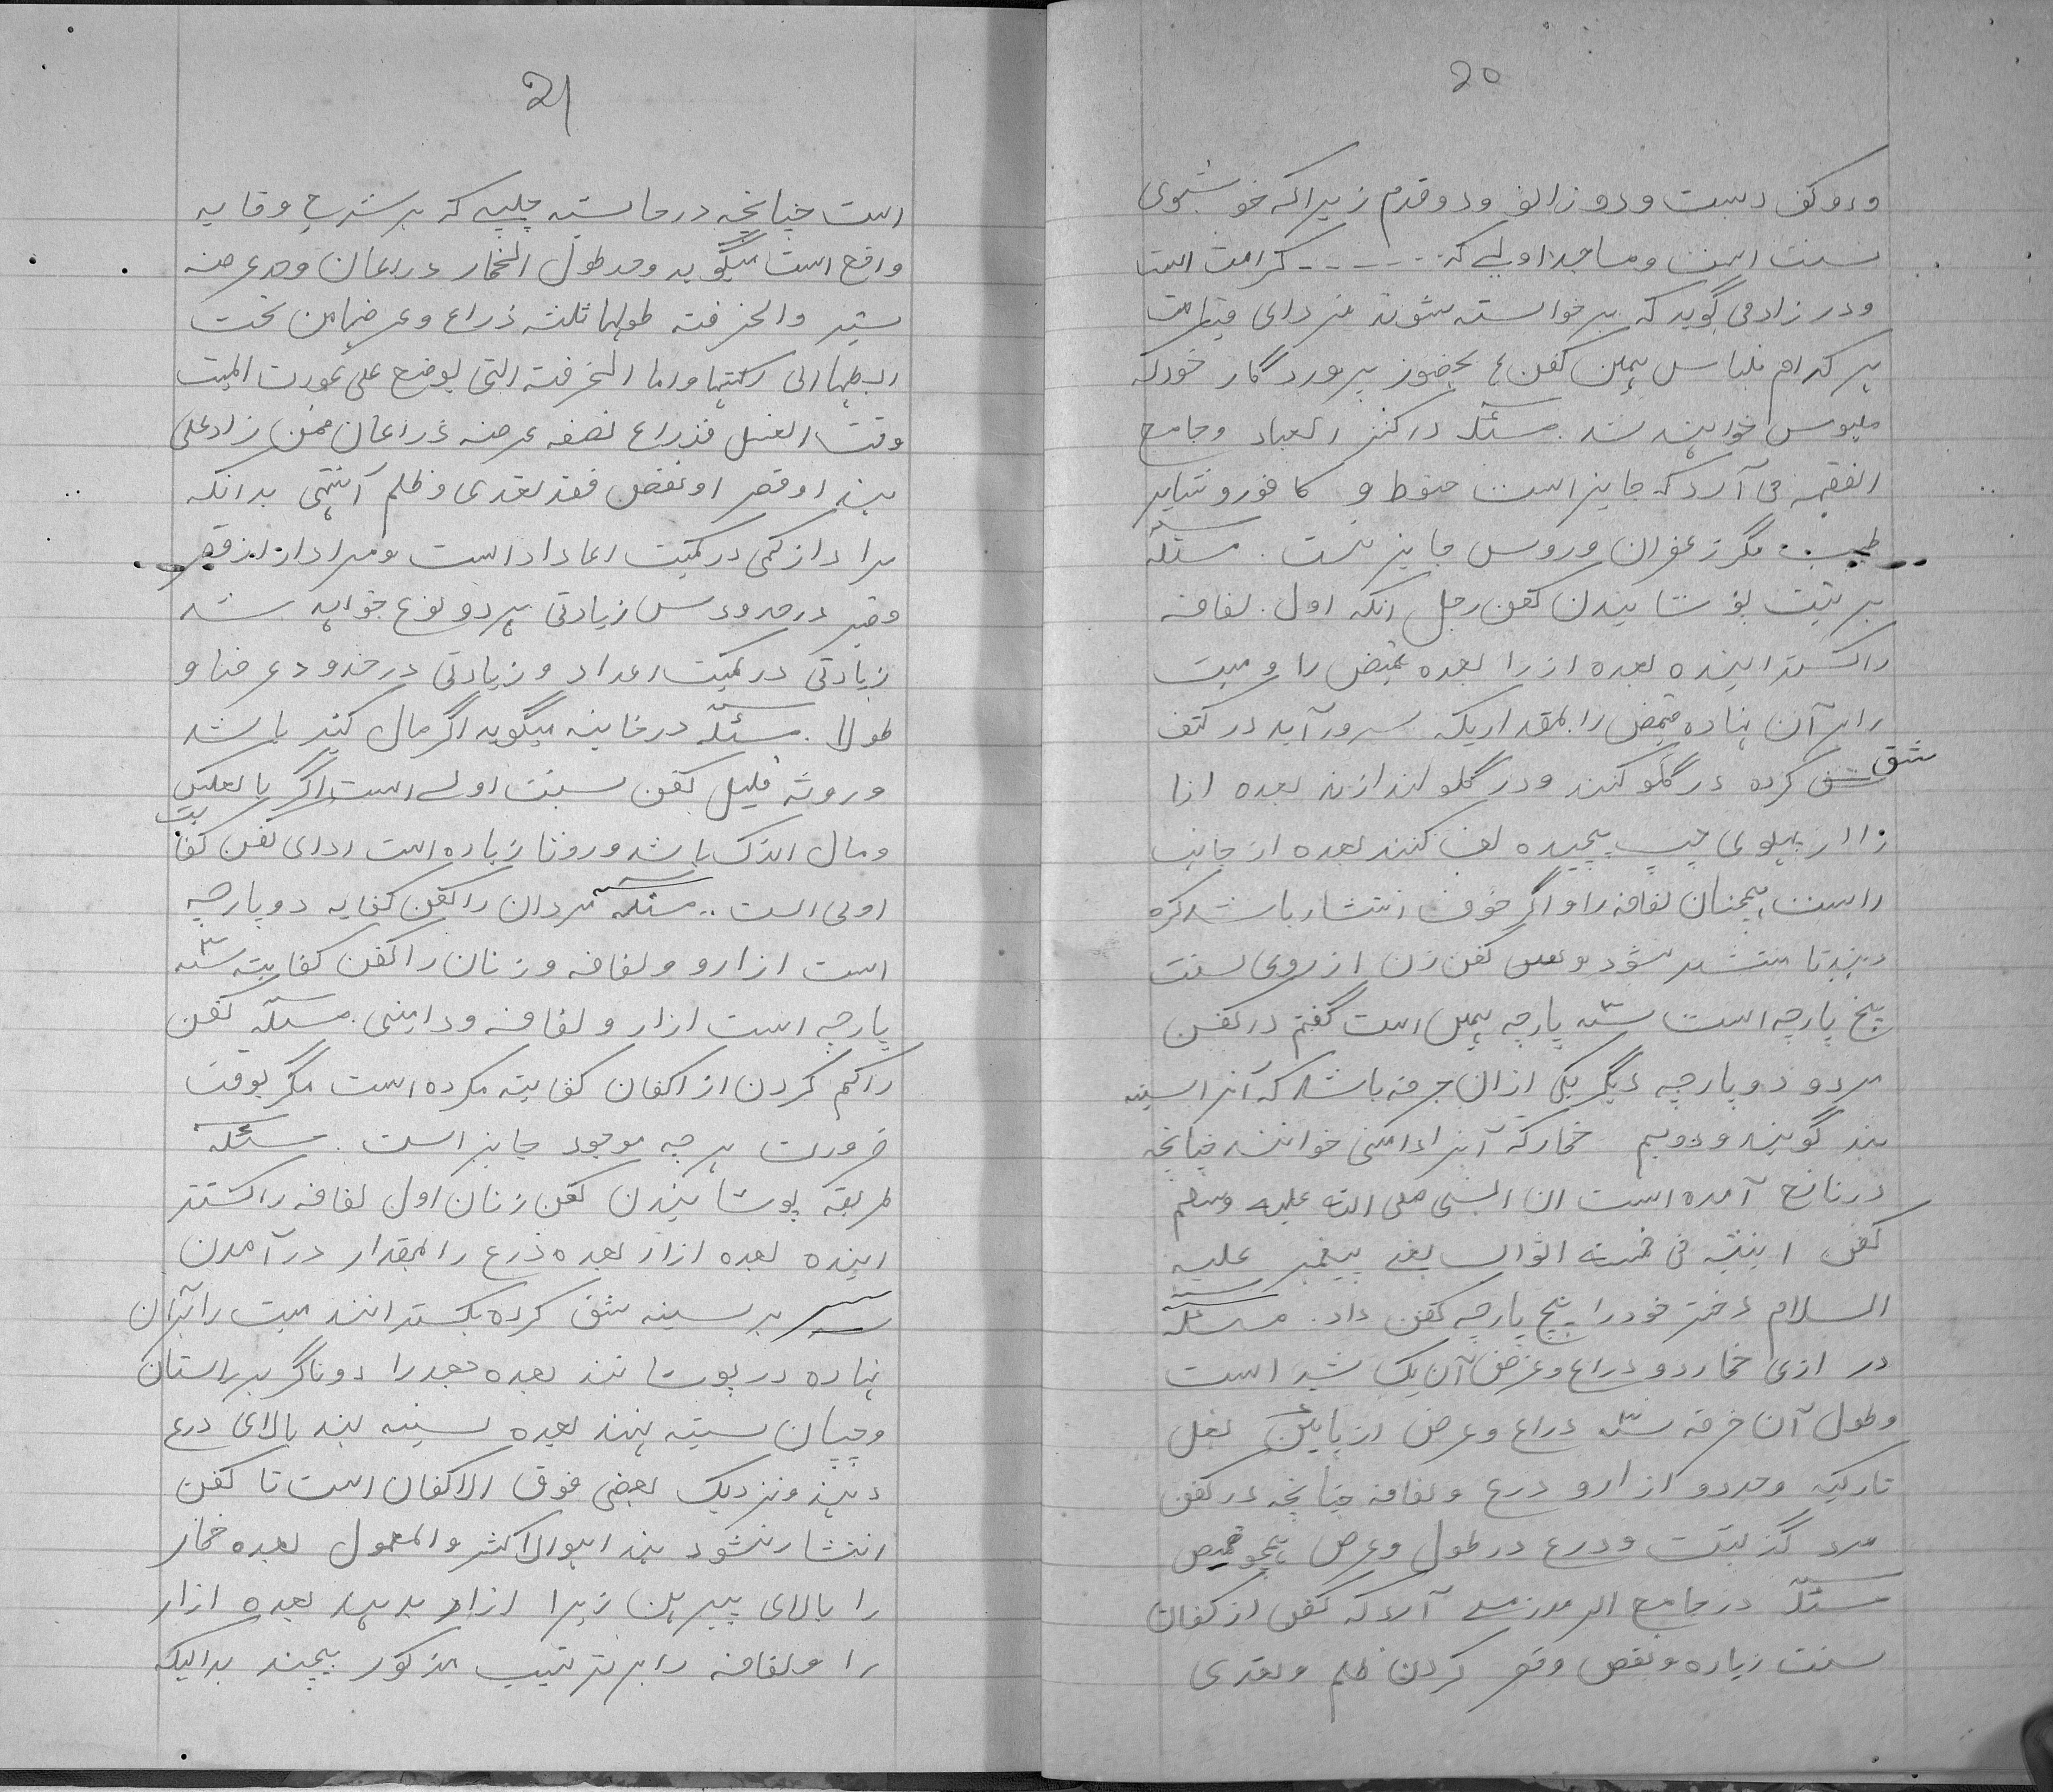 20
ودو کف دست ودو زانو ودو قدم زیراکه خوشبوی
سنت است ومساجد اولی که ------ کرامت است
ودر زاد می گوید که برخواسته شوند فردای قیامت
هر کدام بلباس همین کفن ها بحضور پروردگار خودکه
ملبوس خواهند شد. مسئله در کنز العباد وجامع
الفقه می آرد که جایز است حنوط و کافور وتمامی
طیب مگر زعفران وروس جایز نیست. مسئله
ترتیب پوشانیدن کفن رجل انکه اول لفافه
راگسترانیده بعده ازار را بعده قمیص را ومیت
رابر آن نهاده قمیص را بمقداریکه سر ورآید در کتف
شق کرده در گلو کنند ودر گلو اندازند بعده ازا
ر را از پهلوی چپ پیچیده لف کنند بعده از جانب
راست همچنان لفافه را واگر خوف انتشار باشد کره
دهند تا منتشر نشود وکفن زن از روی سنت
پنج پارچه است سه پارچه همین است گفتم در کفن
مرد و دو پارچه دیگر یکی ازان خرقه باشد که آنرا سینه
بند گویند ودویم خمار که آنرا دامنی خوانند چنانچه
در نافع آمده است ان النبی صلی الله علیه وسلم
کفن ابنته فی خمسة اثواب یعنی پیغمبر علیه
السلام دختر خودرا پنج پارچه کفن داد. مسئله
درازی خمار دو ذراع وعرض آن یک شبر است
وطول آن خرقه سه ذراع وعرض از پایین بغل
تا رکبه وحد دو ازار و درع ولفافه چنانچه در کفن
مرد گذشت ودرع در طول وعرض همچو قمیص
مسئله در جامع الرموز می آرد که کفن از کفان
سنت زیاده ونقص وقصر کردن ظلم وتعدی
21
است چنانچه در حاشیه چلپی که بر شرح وقایه
واقع است میگوید وحد طول الخمار ذراعان وحد عرضه
شبر والخرقة طولها ثلثة ذراع وعرضها من تحت
ابطها الی رکبتها واما الخرقة التی یوضع علی عورت المیت
وقت الغسل فذراع نصفه عرضه ذراعان فمن زاد علی
هذا او قصر او نقص فقد تعدی وظلم آنتهی بدانکه
مراد از کمی در کمیت اعداد است ومراد از قصر
وقصر در حدود پس زیادتی بر دو نوع خواهد شد
زیادتی در کمیت اعداد و زیادتی در حدود عرضا و
طولا. مسئله در خانیه میگوید اگر مال کثیر باشد
وروثه قلیل کفن سنت اولی است اگر بالعکس
ومال اندک باشد وروثا زیاده است ادای کفن کفایت
اولی است.. مسئله مردان را کفن کفایه دو پارچه
است ازارو ولفافه وزنان را کفن کفایته سه
پارچه است ازار ولفافه ودامنی. مسئله کفن
راکم کردن از اکفان کفایته مکرده است مگر بوقت
ضرورت هرچه موجود جایز است. مسئله
طریقه پوشانیدن کفن زنان اول لفافه راگستر
انیده بعده ازار بعده ذرع را بمقدار درآمدن
سر بر سینه شق کرده بگسترانند میت رابرآن
نهاده در پوشانند بعده جعد را دوتا گر بر راستان
وچپان سینه نهند بعده سینه بند بالای درع
دهند ونزدیک بعضی فوق الاکفان است تا کفن
انتشار نشود هذا هوالاکثر والمعمول بعده خمار
را بالای پیرهن زیرا ازار بدهد بعده ازار
را ولفافه را بر ترتیب مذکور پیچند بدانیکه